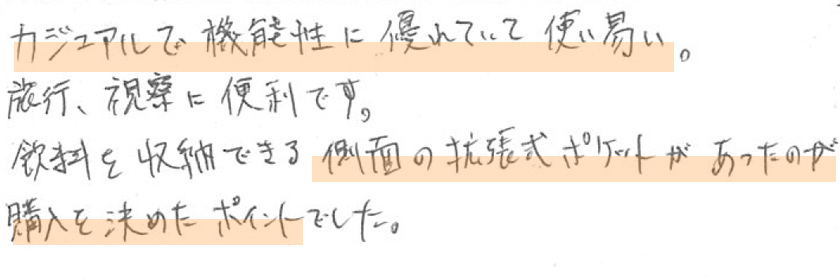 カジュアルで機能性に優れていて使い易い。
旅行、視察に便利です。
飲料を収納できる側面の拡張式ポケットがあったのが
購入を決めたポイントでした。